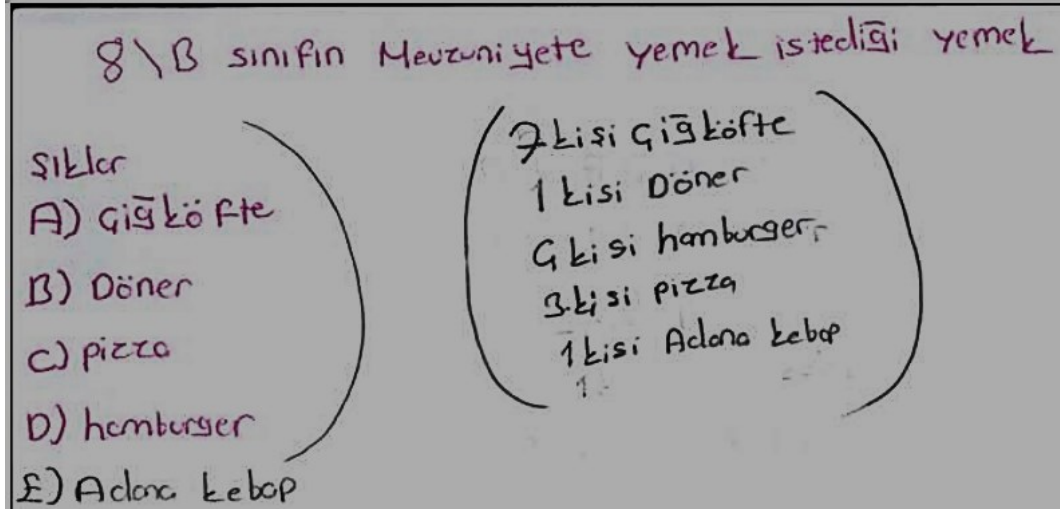 8\B sınıfın Mevzuniyete yemek istediği yemek
Şıklar
A) Çiğ köfte
B) Döner
C) pizza
D) hamburger
E) Adana kebap
7 kişi Çiğ köfte
1 kisi Döner
kisi hamburger
3 kisi pizza
1 kisi Adana kebap